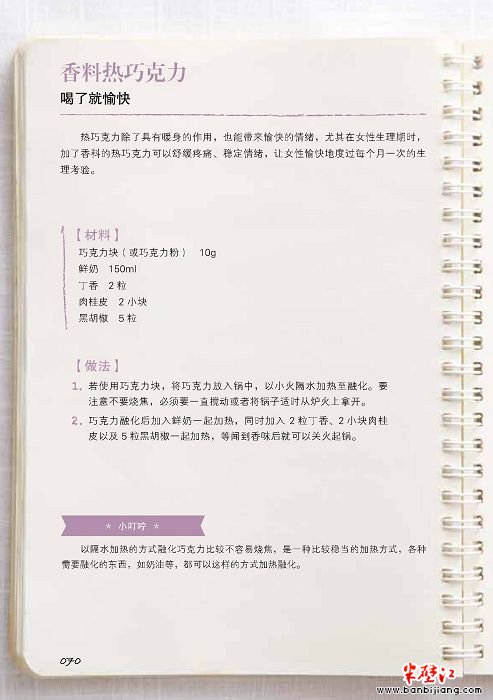 香料热巧克力
喝了就愉快
热巧克力除了具有暖身的作用，也能带来愉快的情绪，尤其在女性生理期时，
加了香料的热巧克力可以舒缓疼痛、稳定情绪，让女性愉快地度过每个月一次的生
理考验。
【材料】
巧克力块（或巧克力粉） 10g
鲜奶 150ml
丁香 2粒
肉桂皮 2小块
黑胡椒 5粒
【做法】
1. 若使用巧克力块，将巧克力放入锅中，以小火隔水加热至融化。要
注意不要烧焦，必须要一直搅动或者将锅子适时从炉火上拿开。
2. 巧克力融化后加入鲜奶一起加热，同时加入2粒丁香、2小块肉桂
皮以及5粒黑胡椒一起加热，等闻到香味后就可以关火起锅。
* 小叮咛 *
以隔水加热的方式融化巧克力比较不容易烧焦，是一种比较稳当的加热方式，各种
需要融化的东西，如奶油等，都可以这样的方式加热融化。
070
半壁江
www.banbijiang.com